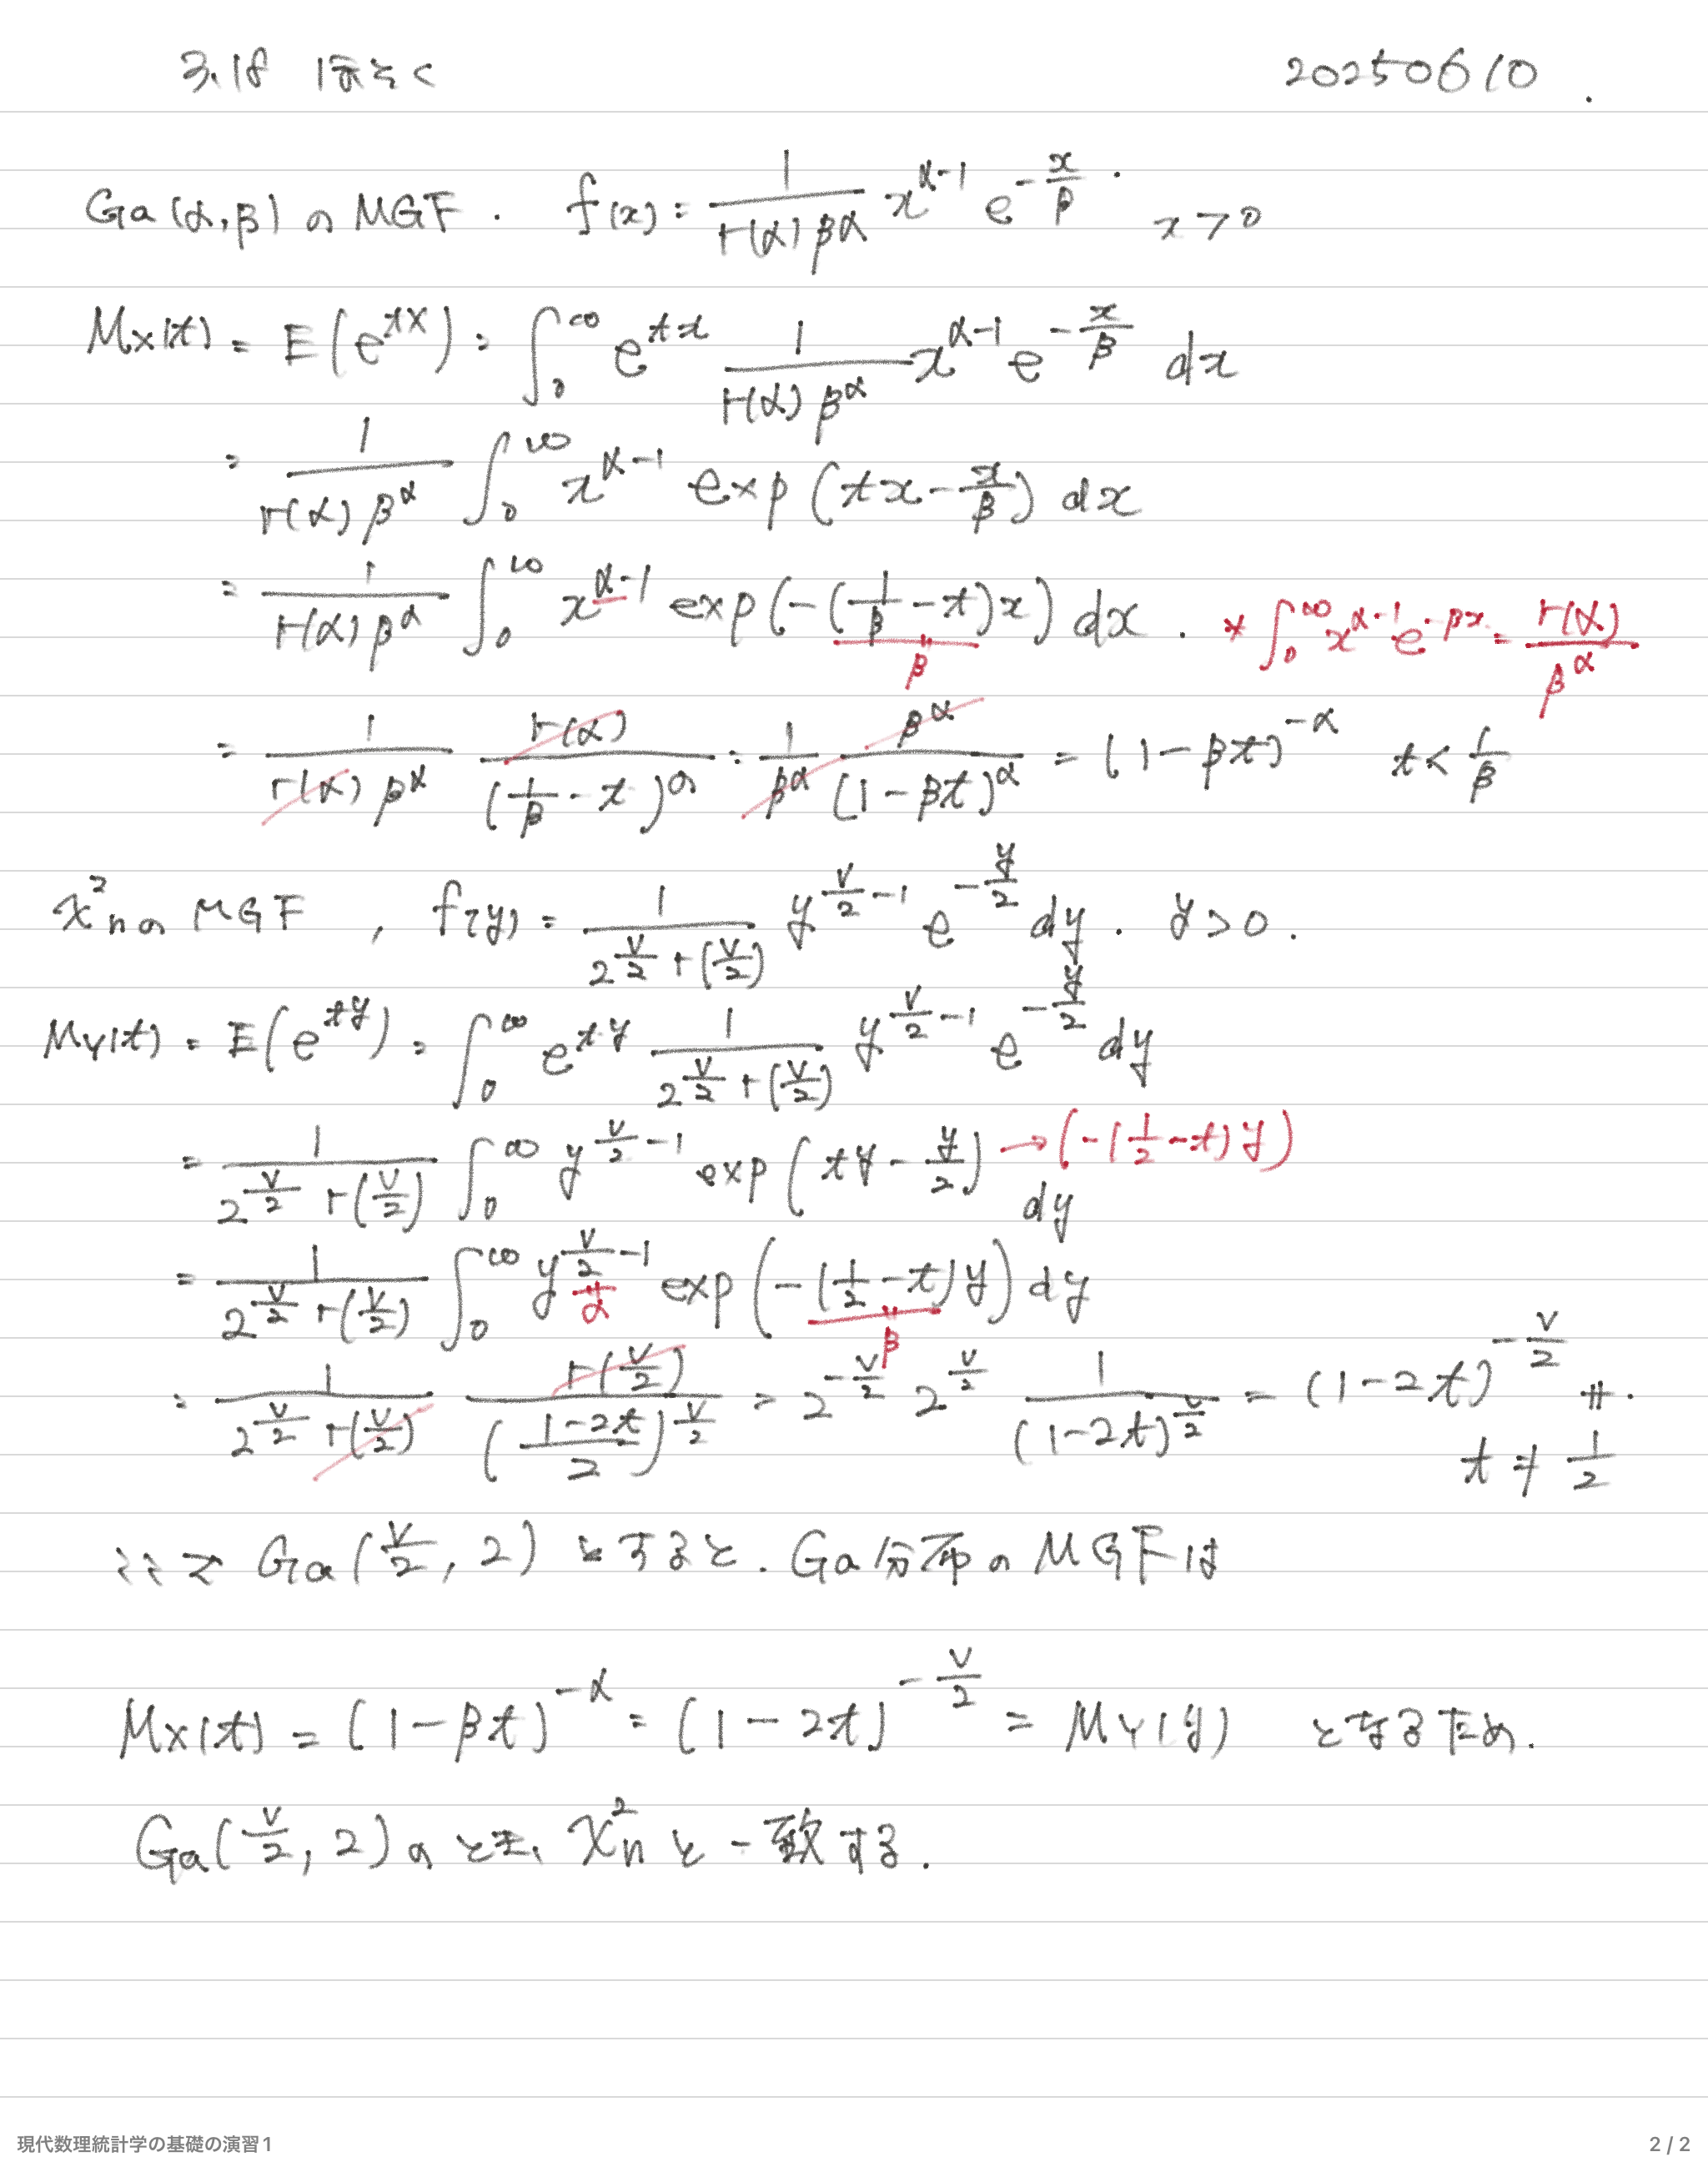 3.18 ほそく 20250610.
Ga(α,β)のMGF. f(x) = 1/(Γ(α)β^α) x^(α-1) e^(-x/β). x>0
M_X(t) = E(e^(tX)) = ∫_0^∞ e^(tx) 1/(Γ(α)β^α) x^(α-1) e^(-x/β) dx
= 1/(Γ(α)β^α) ∫_0^∞ x^(α-1) exp(tx - x/β) dx
= 1/(Γ(α)β^α) ∫_0^∞ x^(α-1) exp(-(1/β - t)x) dx. * ∫_0^∞ x^(α-1) e^(-βx) = Γ(α)/β^α
β
= 1/(Γ(α)β^α) Γ(α)/(1/β - t)^α = 1/β^α β^α/(1-βt)^α = (1-βt)^(-α) t < 1/β
χ²_n の MGF, f(y) = 1/(2^(v/2) Γ(v/2)) y^(v/2 -1) e^(-y/2) dy. y>0.
M_Y(t) = E(e^(ty)) = ∫_0^∞ e^(ty) 1/(2^(v/2) Γ(v/2)) y^(v/2 -1) e^(-y/2) dy
= 1/(2^(v/2) Γ(v/2)) ∫_0^∞ y^(v/2 -1) exp(ty - y/2) → (-(1/2 - t)y) dy
= 1/(2^(v/2) Γ(v/2)) ∫_0^∞ y^(v/2 -1) exp(-(1/2 - t)y) dy
α β
= 1/(2^(v/2) Γ(v/2)) Γ(v/2)/((1-2t)/2)^(v/2) = 2^(-v/2) 2^(v/2) 1/(1-2t)^(v/2) = (1-2t)^(-v/2) #.
t ≠ 1/2
ここで Ga(v/2, 2) とすると. Ga分布の MGFは
M_X(t) = (1-βt)^(-α) = (1-2t)^(-v/2) = M_Y(y) となるため.
Ga(v/2, 2)のとき、χ²_n と一致する.
現代数理統計学の基礎の演習1 2 / 2